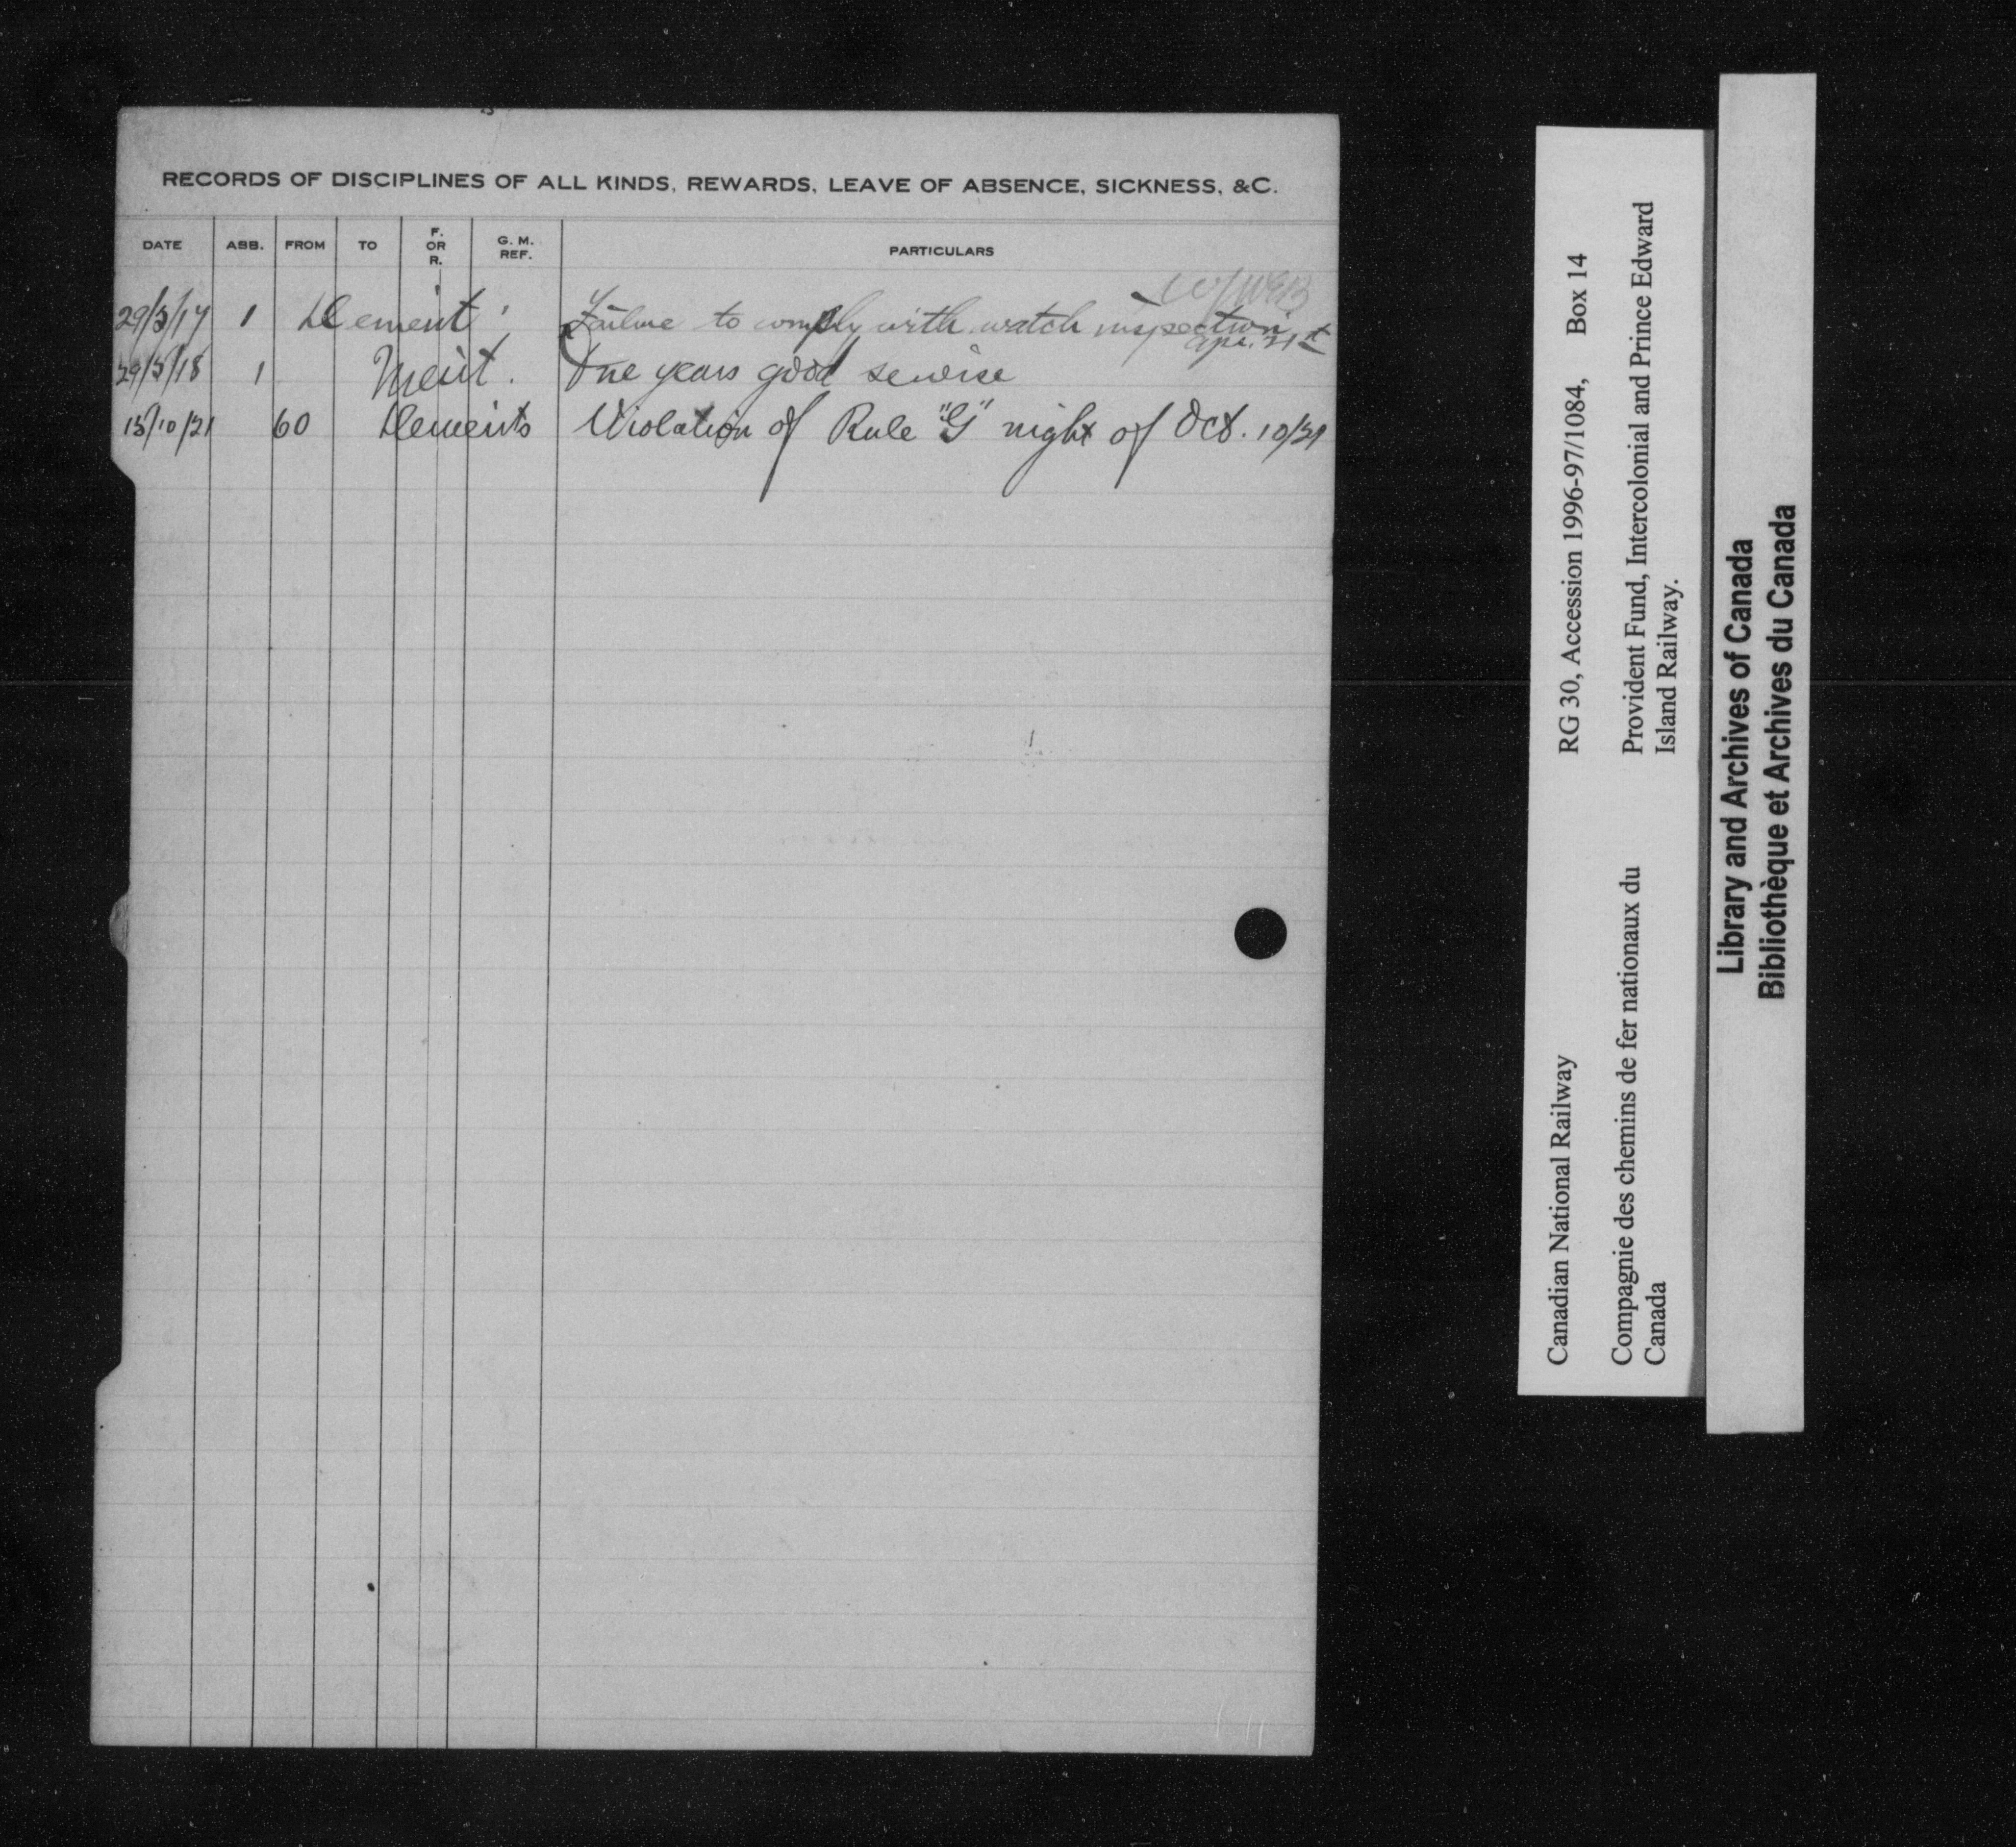 RECORDS OF DISCIPLINES OF ALL KINDS, REWARDS, LEAVE OF ABSENCE, SICKNESS, &C.
DATE ABB. FROM TO F. OR R. G. M. REF. PARTICULARS
29/5/17 1 Dement Failure to comply with watch inspection
Apr. 21st
29/5/18 1 Merit. One years good servise
15/10/21 60 Dements Violation of Rule "G" night of Oct. 10/21
RG 30, Accession 1996-97/1084, Box 14
Provident Fund, Intercolonial and Prince Edward
Island Railway.
Canadian National Railway
Compagnie des chemins de fer nationaux du
Canada
Library and Archives of Canada
Bibliothèque et Archives du Canada